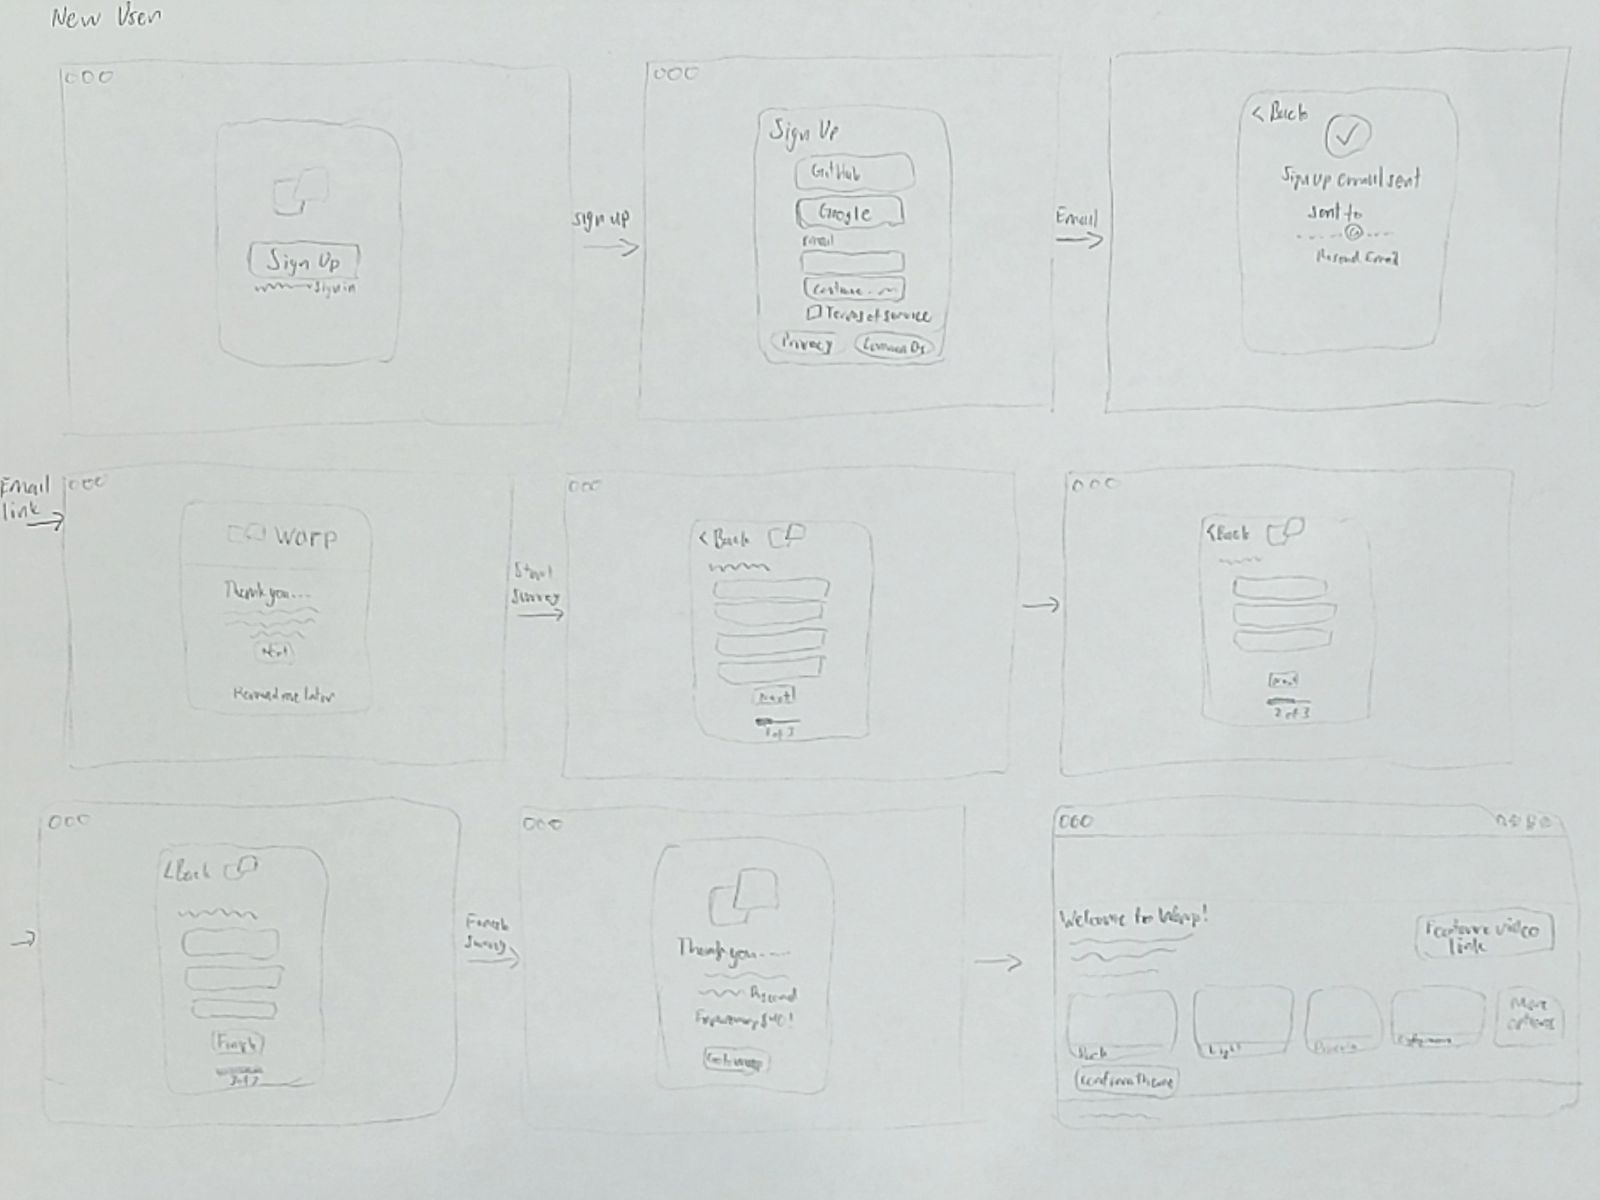 New User
Sign Up
sign in
sign up
Sign Up
GitHub
Google
Email
Terms of service
Privacy
Email
< Back
Sign up email sent
sent to
Resend Email
Email
link
warp
Thank you...
Next
Remind me later
Start
Survey
< Back
Next
1 of 3
< Back
Next
2 of 3
< Back
Finish
3 of 3
Finish
Survey
Thank you....
Go to warp
Welcome to Warp!
Feature video
link
Dark
Light
More
options
Confirm Theme